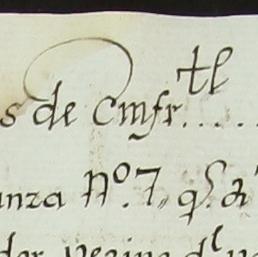 s de Cmfr.tl.....
anza Nº. 7,, q.e a
dor, vecino d.l